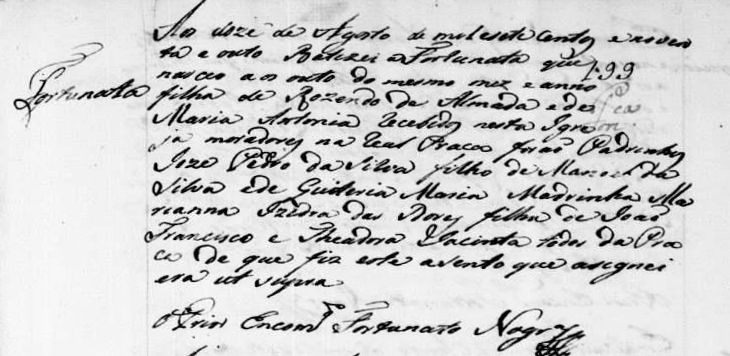 Aos doze de Agosto de mil e sete Centos e noven
ta e outo Batizei a Fortunata que
nasceo aos outo do mesmo mez e anno
199
Fortunata
filha de Rozendo de Almada e de
Maria Antonia recebidos nesta Igre
ja moradores na Real Praça forão Padrinhos
Joze Pedro da Silva filho de Manoel da
Silva e de Quiteria Maria Madrinha Ma
rianna Izidra das Dores filha de João
Francisco e Theadora Jacinta todos da Pra
ça de que fiz este asento que asignei
era ut supra
O Prior Encomdo Fortunato